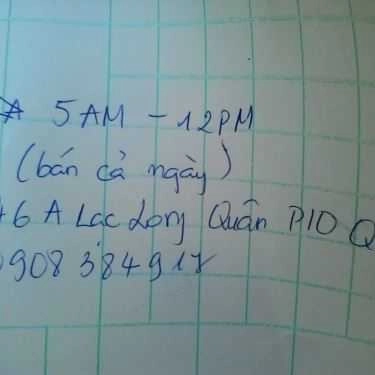 5AM - 12PM
(bán cả ngày)
46 A Lạc Long Quân P10 Q
0908 384 917